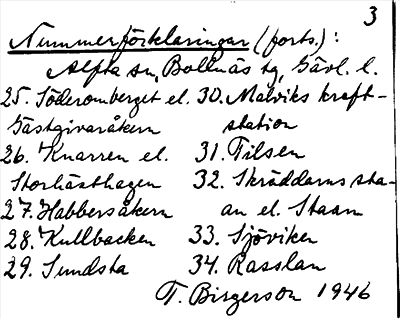 3
Nummerförklaringar (forts.):
Alfta sn, Bollnäs tg, Gävl. l.
25. Söderomberget el.
Gästgivaråkern
26. Knarren el.
Storhästhagen
27. Habbersåkern
28. Kullbacken
29. Sundsta
30. Malviks kraft-
station
31. Tilsen
32. Skräddarns sta-
an el. Staan
33. Sjöviken
34. Rasslan
T. Birgerson 1946